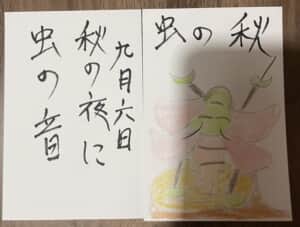 九月六日
秋の夜に
虫の音
虫の秋